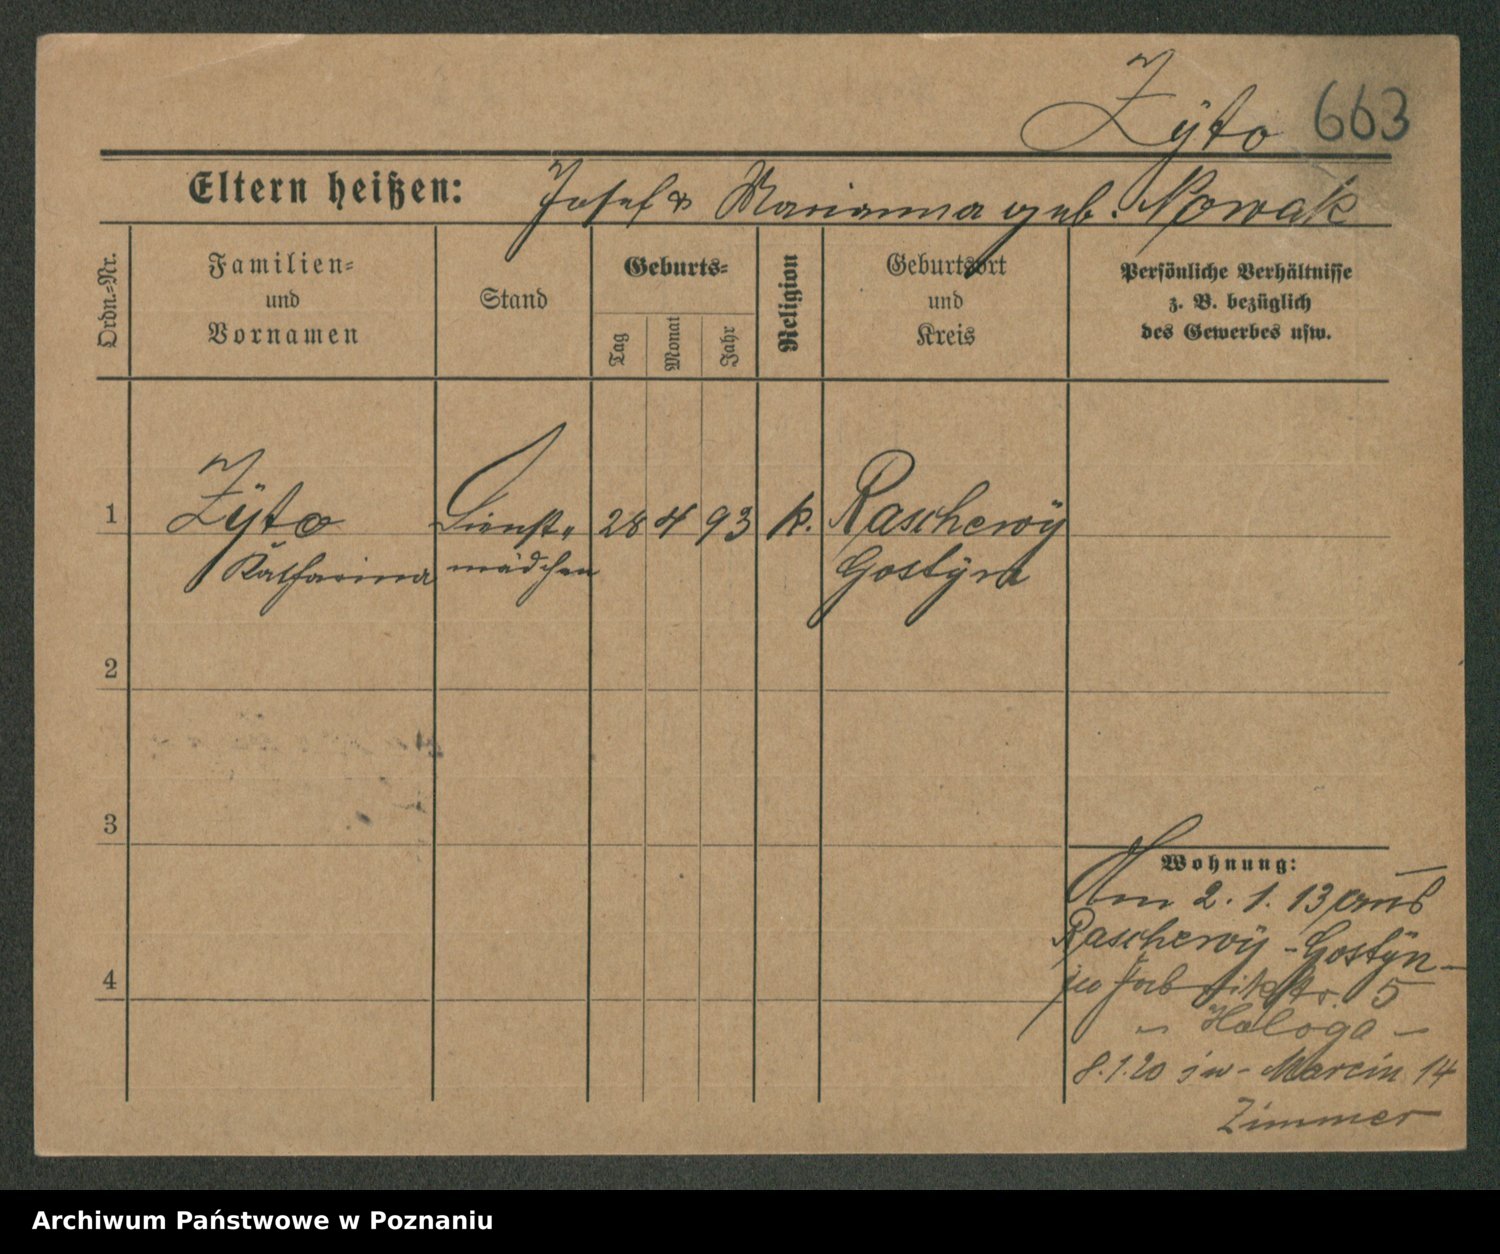 Zÿto 663
Eltern heißen: Josef & Marianna geb. Nowak
Ordn.-Nr.
Familien-
und
Vornamen
Stand
Geburts-
Tag
Monat
Jahr
Religion
Geburtsort
und
Kreis
Persönliche Verhältnisse
z. B. bezüglich
des Gewerbes usw.
1 Zÿto Dienst- 28 4 93 k. Raschewÿ
Katharina mädchen Gostÿn
2
3
4
Wohnung:
Am 2. 1. 13 aus
Raschewÿ - Gostÿn -
zu Fabrikstr. 5
- Haloga -
8.1.20 Marcin 14
Zimmer
Archiwum Państwowe w Poznaniu